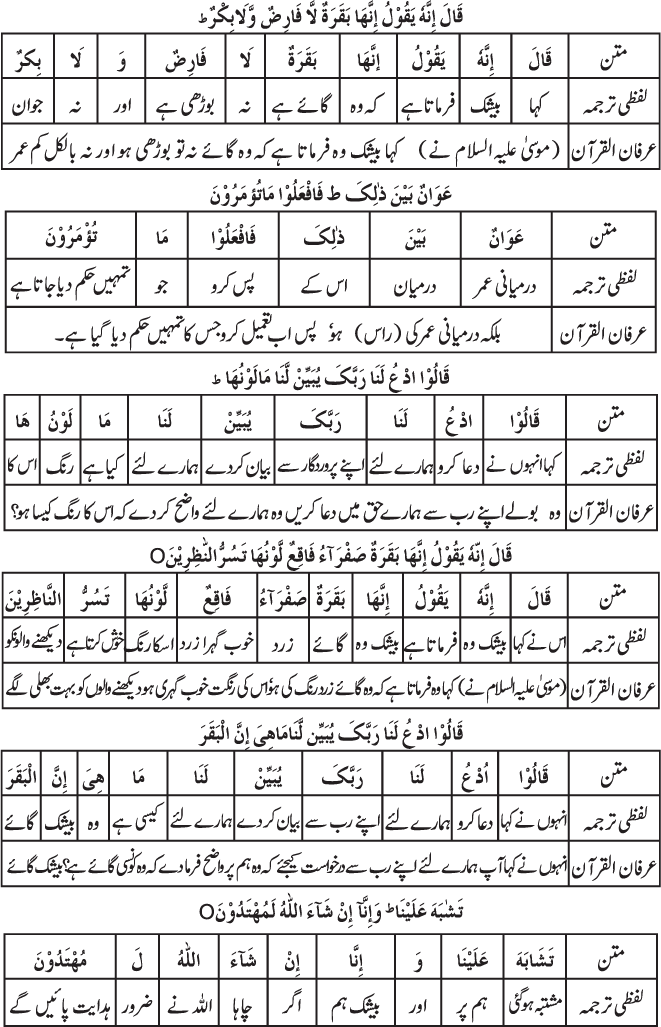 قَالَ إِنَّهٗ يَقُوْلُ إِنَّهَا بَقَرَةٌ لَّا فَارِضٌ وَّلَا بِكْرٌ ط
متن قَالَ إِنَّهٗ يَقُوْلُ إِنَّهَا بَقَرَةٌ لَا فَارِضٌ وَ لَا بِكْرٌ
لفظی ترجمہ کہا بیشک فرماتا ہے کہ وہ گائے ہے نہ بوڑھی ہے اور نہ جوان
عرفان القرآن (موسیٰ علیہ السلام نے) کہا بیشک وہ فرماتا ہے کہ وہ گائے نہ تو بوڑھی ہو اور نہ بالکل کم عمر
عَوَانٌ بَيْنَ ذٰلِکَ ط فَافْعَلُوْا مَا تُؤْمَرُوْنَ
متن عَوَانٌ بَيْنَ ذٰلِکَ فَافْعَلُوْا مَا تُؤْمَرُوْنَ
لفظی ترجمہ درمیانی عمر درمیان اس کے پس کرو جو تمہیں حکم دیا جاتا ہے
عرفان القرآن بلکہ درمیانی عمر کی (راس) ہو، پس اب تعمیل کرو جس کا تمہیں حکم دیا گیا ہے۔
قَالُوْا ادْعُ لَنَا رَبَّکَ يُبَيِّنْ لَّنَا مَا لَوْنُهَا ط
متن قَالُوْا ادْعُ لَنَا رَبَّکَ يُبَيِّنْ لَنَا مَا لَوْنُ هَا
لفظی ترجمہ کہا انہوں نے دعا کرو ہمارے لئے اپنے پروردگار سے بیان کردے ہمارے لئے کیا ہے رنگ اس کا
عرفان القرآن وہ بولے اپنے رب سے ہمارے حق میں دعا کریں وہ ہمارے لئے واضح کر دے کہ اس کا رنگ کیسا ہو؟
قَالَ إِنَّهٗ يَقُوْلُ إِنَّهَا بَقَرَةٌ صَفْرَآءُ فَاقِعٌ لَّوْنُهَا تَسُرُّ النّٰظِرِيْنَO
متن قَالَ إِنَّهٗ يَقُوْلُ إِنَّهَا بَقَرَةٌ صَفْرَآءُ فَاقِعٌ لَّوْنُهَا تَسُرُّ النَّاظِرِيْنَ
لفظی ترجمہ اس نے کہا بیشک وہ فرماتا ہے بیشک وہ گائے زرد خوب گہرا زرد اسکا رنگ خوش کرتا ہے دیکھنے والونکو
عرفان القرآن (موسیٰ علیہ السلام نے) کہا وہ فرماتا ہے کہ وہ گائے زرد رنگ کی ہو، اس کی رنگت خوب گہری ہو دیکھنے والوں کو بہت بھلی لگے
قَالُوْا ادْعُ لَنَا رَبَّکَ يُبَيِّن لَّنَا مَا هِیَ إِنَّ الْبَقَرَ
متن قَالُوْا اُدْعُ لَنَا رَبَّکَ يُبَيِّنْ لَنَا مَا هِیَ إِنَّ الْبَقَرَ
لفظی ترجمہ انہوں نے کہا دعا کرو ہمارے لئے اپنے رب سے بیان کر دے ہمارے لئے کیسی ہے وہ بیشک گائے
عرفان القرآن انہوں نے کہا آپ ہمارے لئے اپنے رب سے درخواست کیجئے کہ وہ ہم پر واضح فرما دے کہ وہ کونسی گائے ہے؟ بیشک گائے
تَشٰبَهَ عَلَيْنَا ط وَإِنَّآ إِنْ شَآءَ اللهُ لَمُهْتَدُوْنَO
متن تَشَابَهَ عَلَيْنَا وَ إِنَّا إِنْ شَآءَ اللهُ لَ مُهْتَدُوْنَ
لفظی ترجمہ مشتبہ ہوگئی ہم پر اور بیشک ہم اگر چاہا اللہ نے ضرور ہدایت پائیں گے